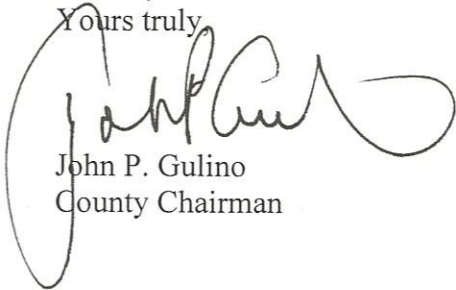 Yours truly,
John P. Gulino
County Chairman